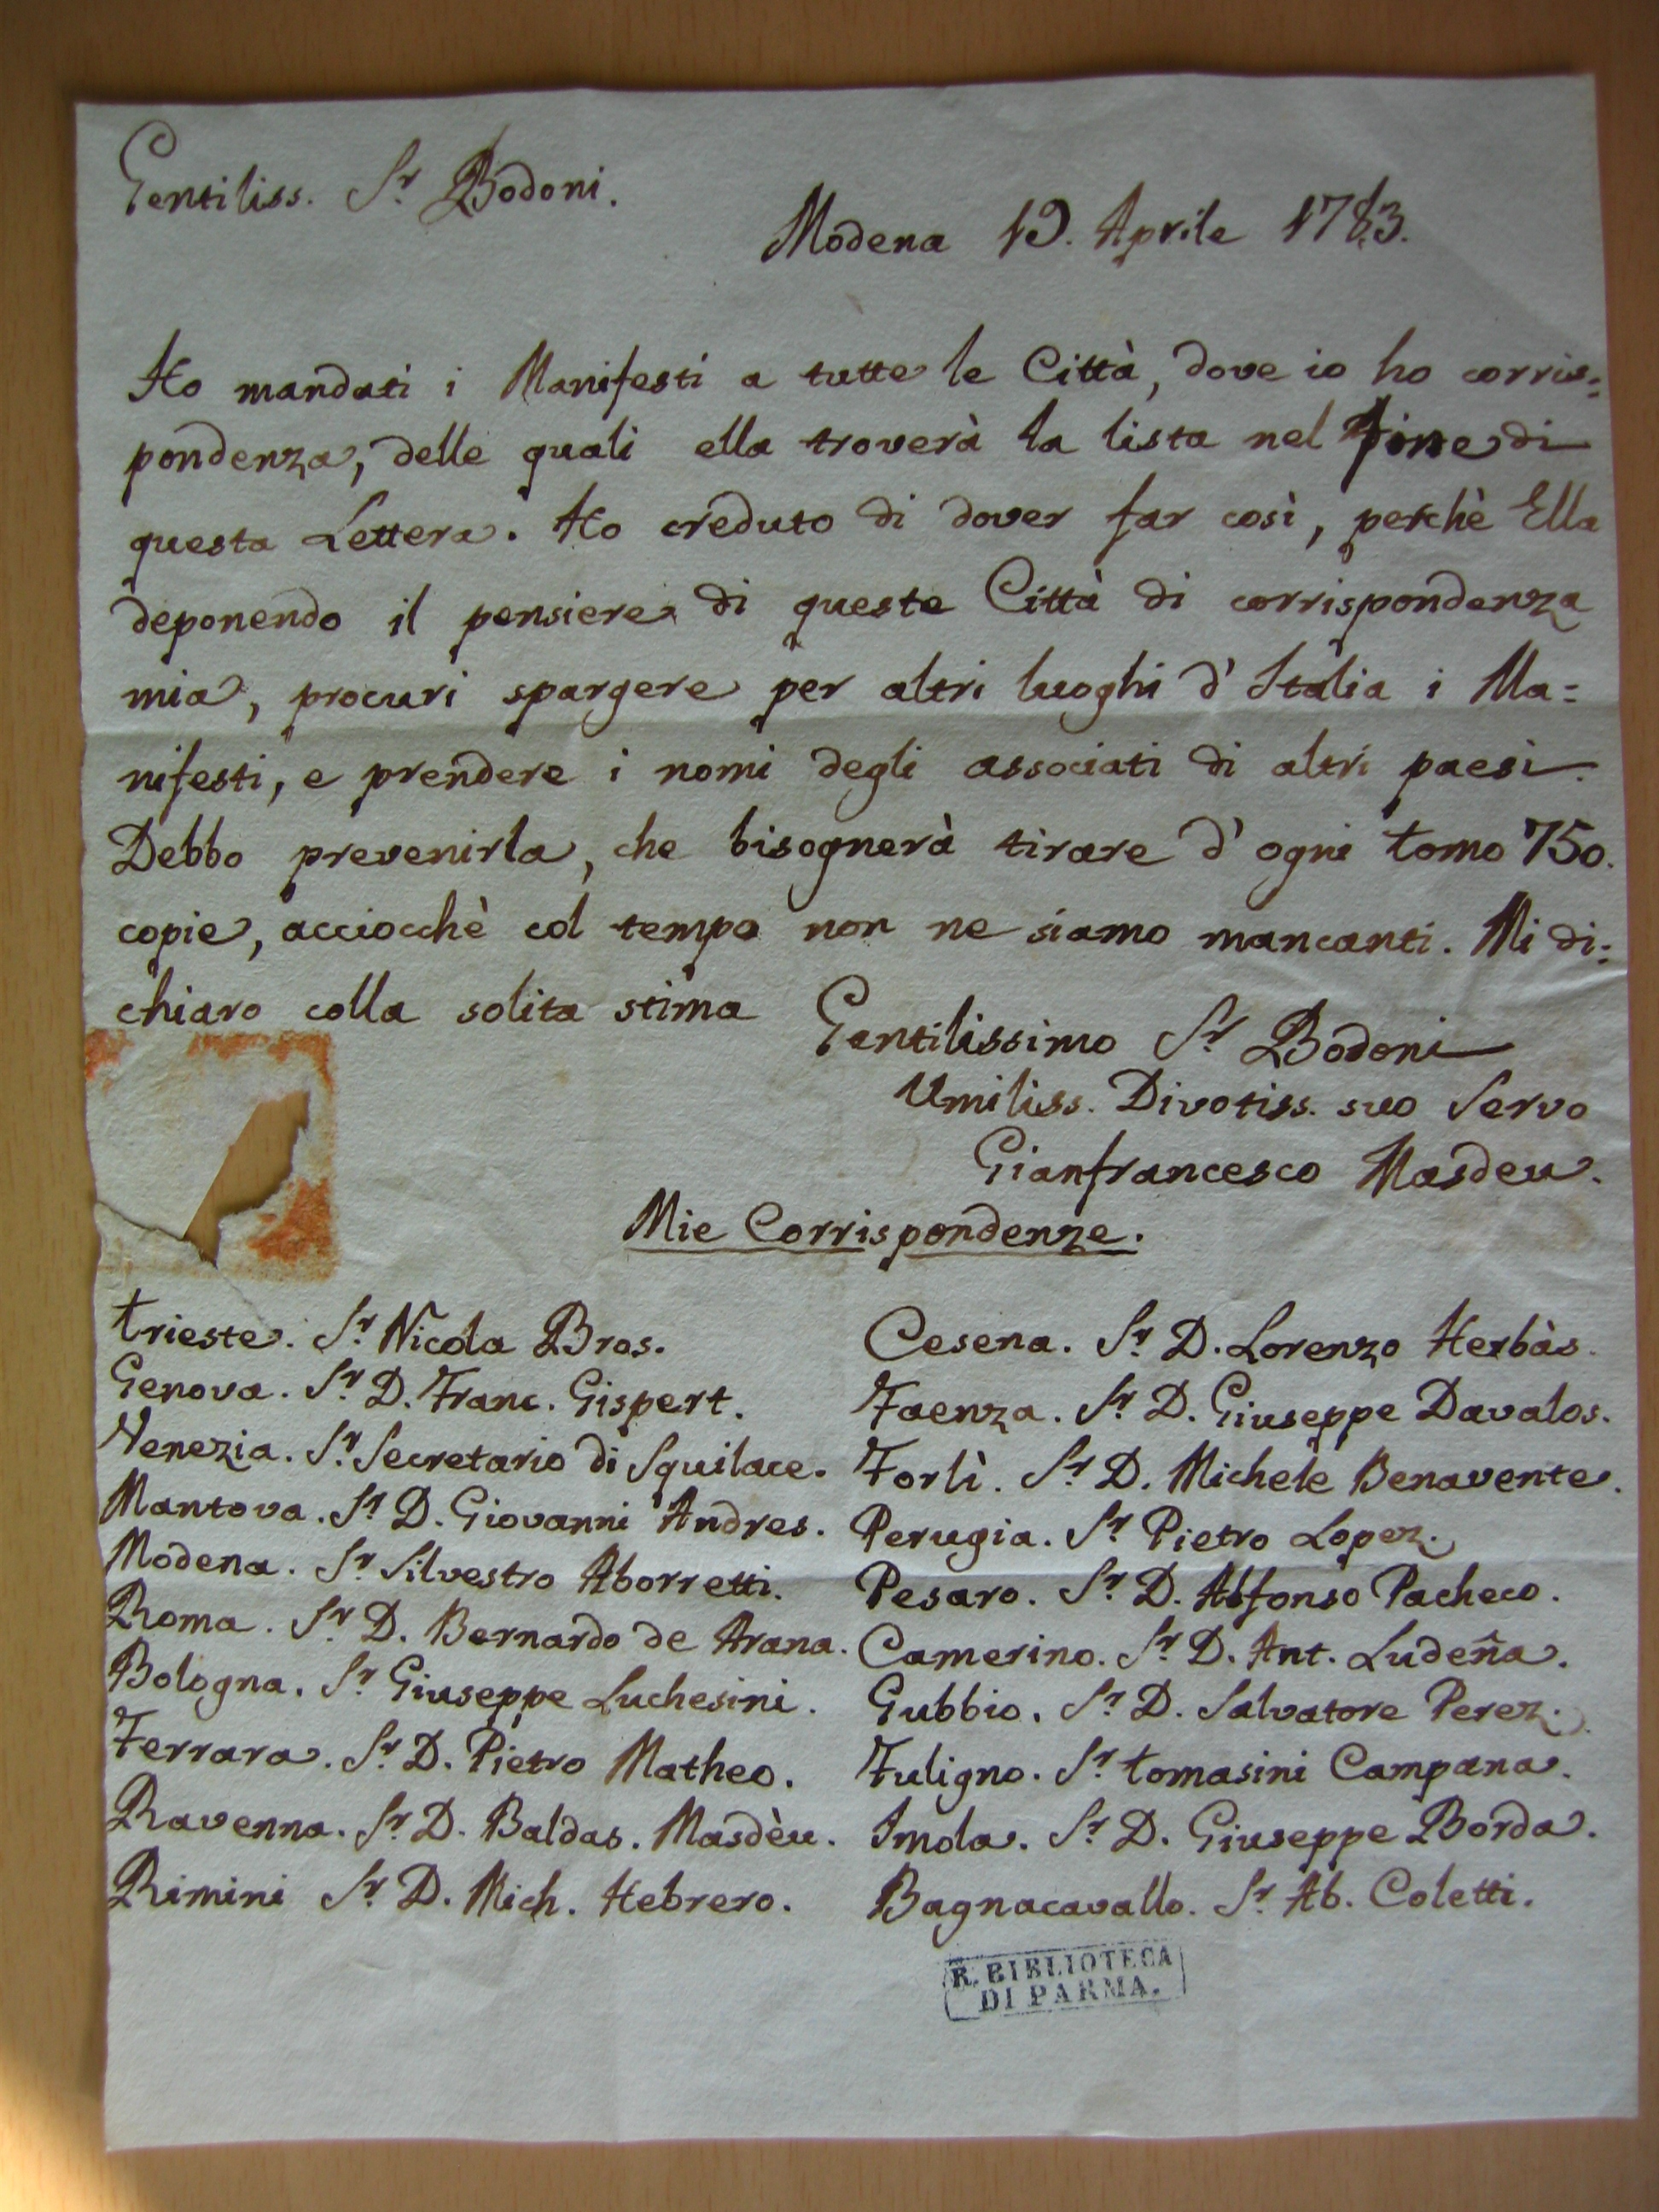 Gentiliss. Sr. Bodoni.
Modena 19. Aprile 1783.
Ho mandati i Manifesti a tutte le Città, dove io ho corris=
pondenza, delle quali ella troverà la lista nel fine di
questa Lettera. Ho creduto di dover far così, perchè Ella
deponendo il pensiere di queste Città di corrispondenza
mia, procuri spargere per altri luoghi d'Italia i Ma=
nifesti, e prendere i nomi degli associati di altri paesi.
Debbo prevenirla, che bisognerà tirare d'ogni tomo 750.
copie, acciocchè col tempo non ne siamo mancanti. Mi di=
chiaro colla solita stima
Gentilissimo Sr. Bodoni
Umiliss. Divotiss. suo Servo
Gianfrancesco Masdeu.
Mie Corrispondenze.
Trieste. Sr. Nicola Bros.
Genova. Sr. D. Franc. Gispert.
Venezia. Sr. Secretario di Squilace.
Mantova. Sr. D. Giovanni Andres.
Modena. Sr. Silvestro Aborretti.
Roma. Sr. D. Bernardo de Arana.
Bologna. Sr. Giuseppe Luchesini.
Ferrara. Sr. D. Pietro Matheo.
Ravenna. Sr. D. Baldas. Masdèu.
Rimini Sr. D. Mich. Hebrero.
Cesena. Sr. D. Lorenzo Herbàs.
Faenza. Sr. D. Giuseppe Davalos.
Forlì. Sr. D. Michele Benavente.
Perugia. Sr. Pietro Lopez.
Pesaro. Sr. D. Alfonso Pacheco.
Camerino. Sr. D. Ant. Ludeña.
Gubbio. Sr. D. Salvatore Perez.
Fuligno. Sr. Tomasini Campana.
Imola. Sr. D. Giuseppe Borda.
Bagnacavallo. Sr. Ab. Coletti.
R. BIBLIOTECA
DI PARMA.